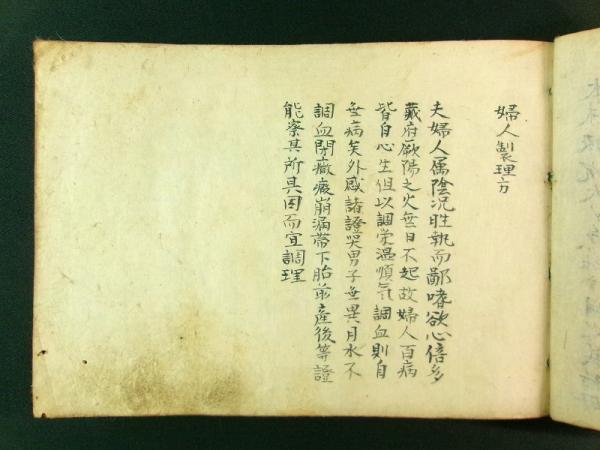 婦人製理方
夫婦人属陰况性執而鄙嗜欲心倍多
蔵府厥陽之火無日不起故婦人百病
皆自心生但以調栄温順気調血則自
無病矣外感諸證與男子無異月水不
調血閉癥瘕崩漏帯下胎前産後等證
能察其所具因而宜調理